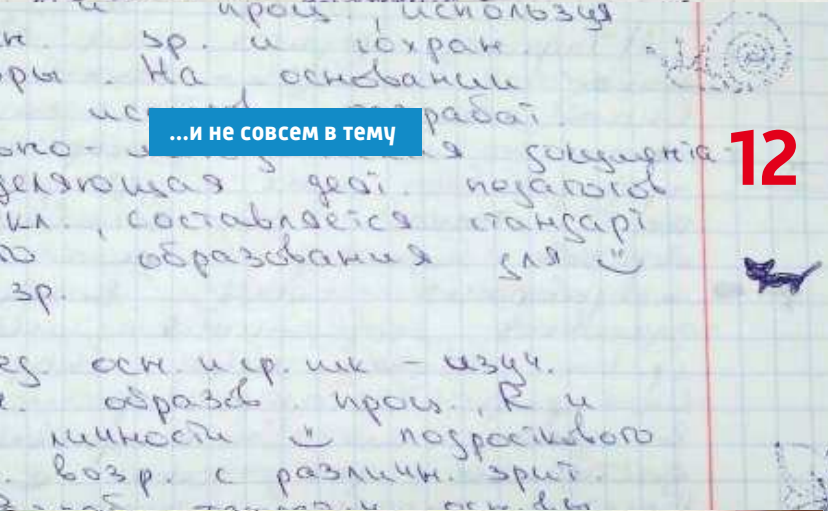 проц., используя
н. зр. и сохран.
ры. На основании
разрабат.
...и не совсем в тему
12
оно- документа-
деляющая деят. педагогов
кл., составляется стандарт
го образования для
зр.
ед осн. и ср. шк – изуч.
образов. проц., R и
личности подросткового
. возр. с различн. зрит.